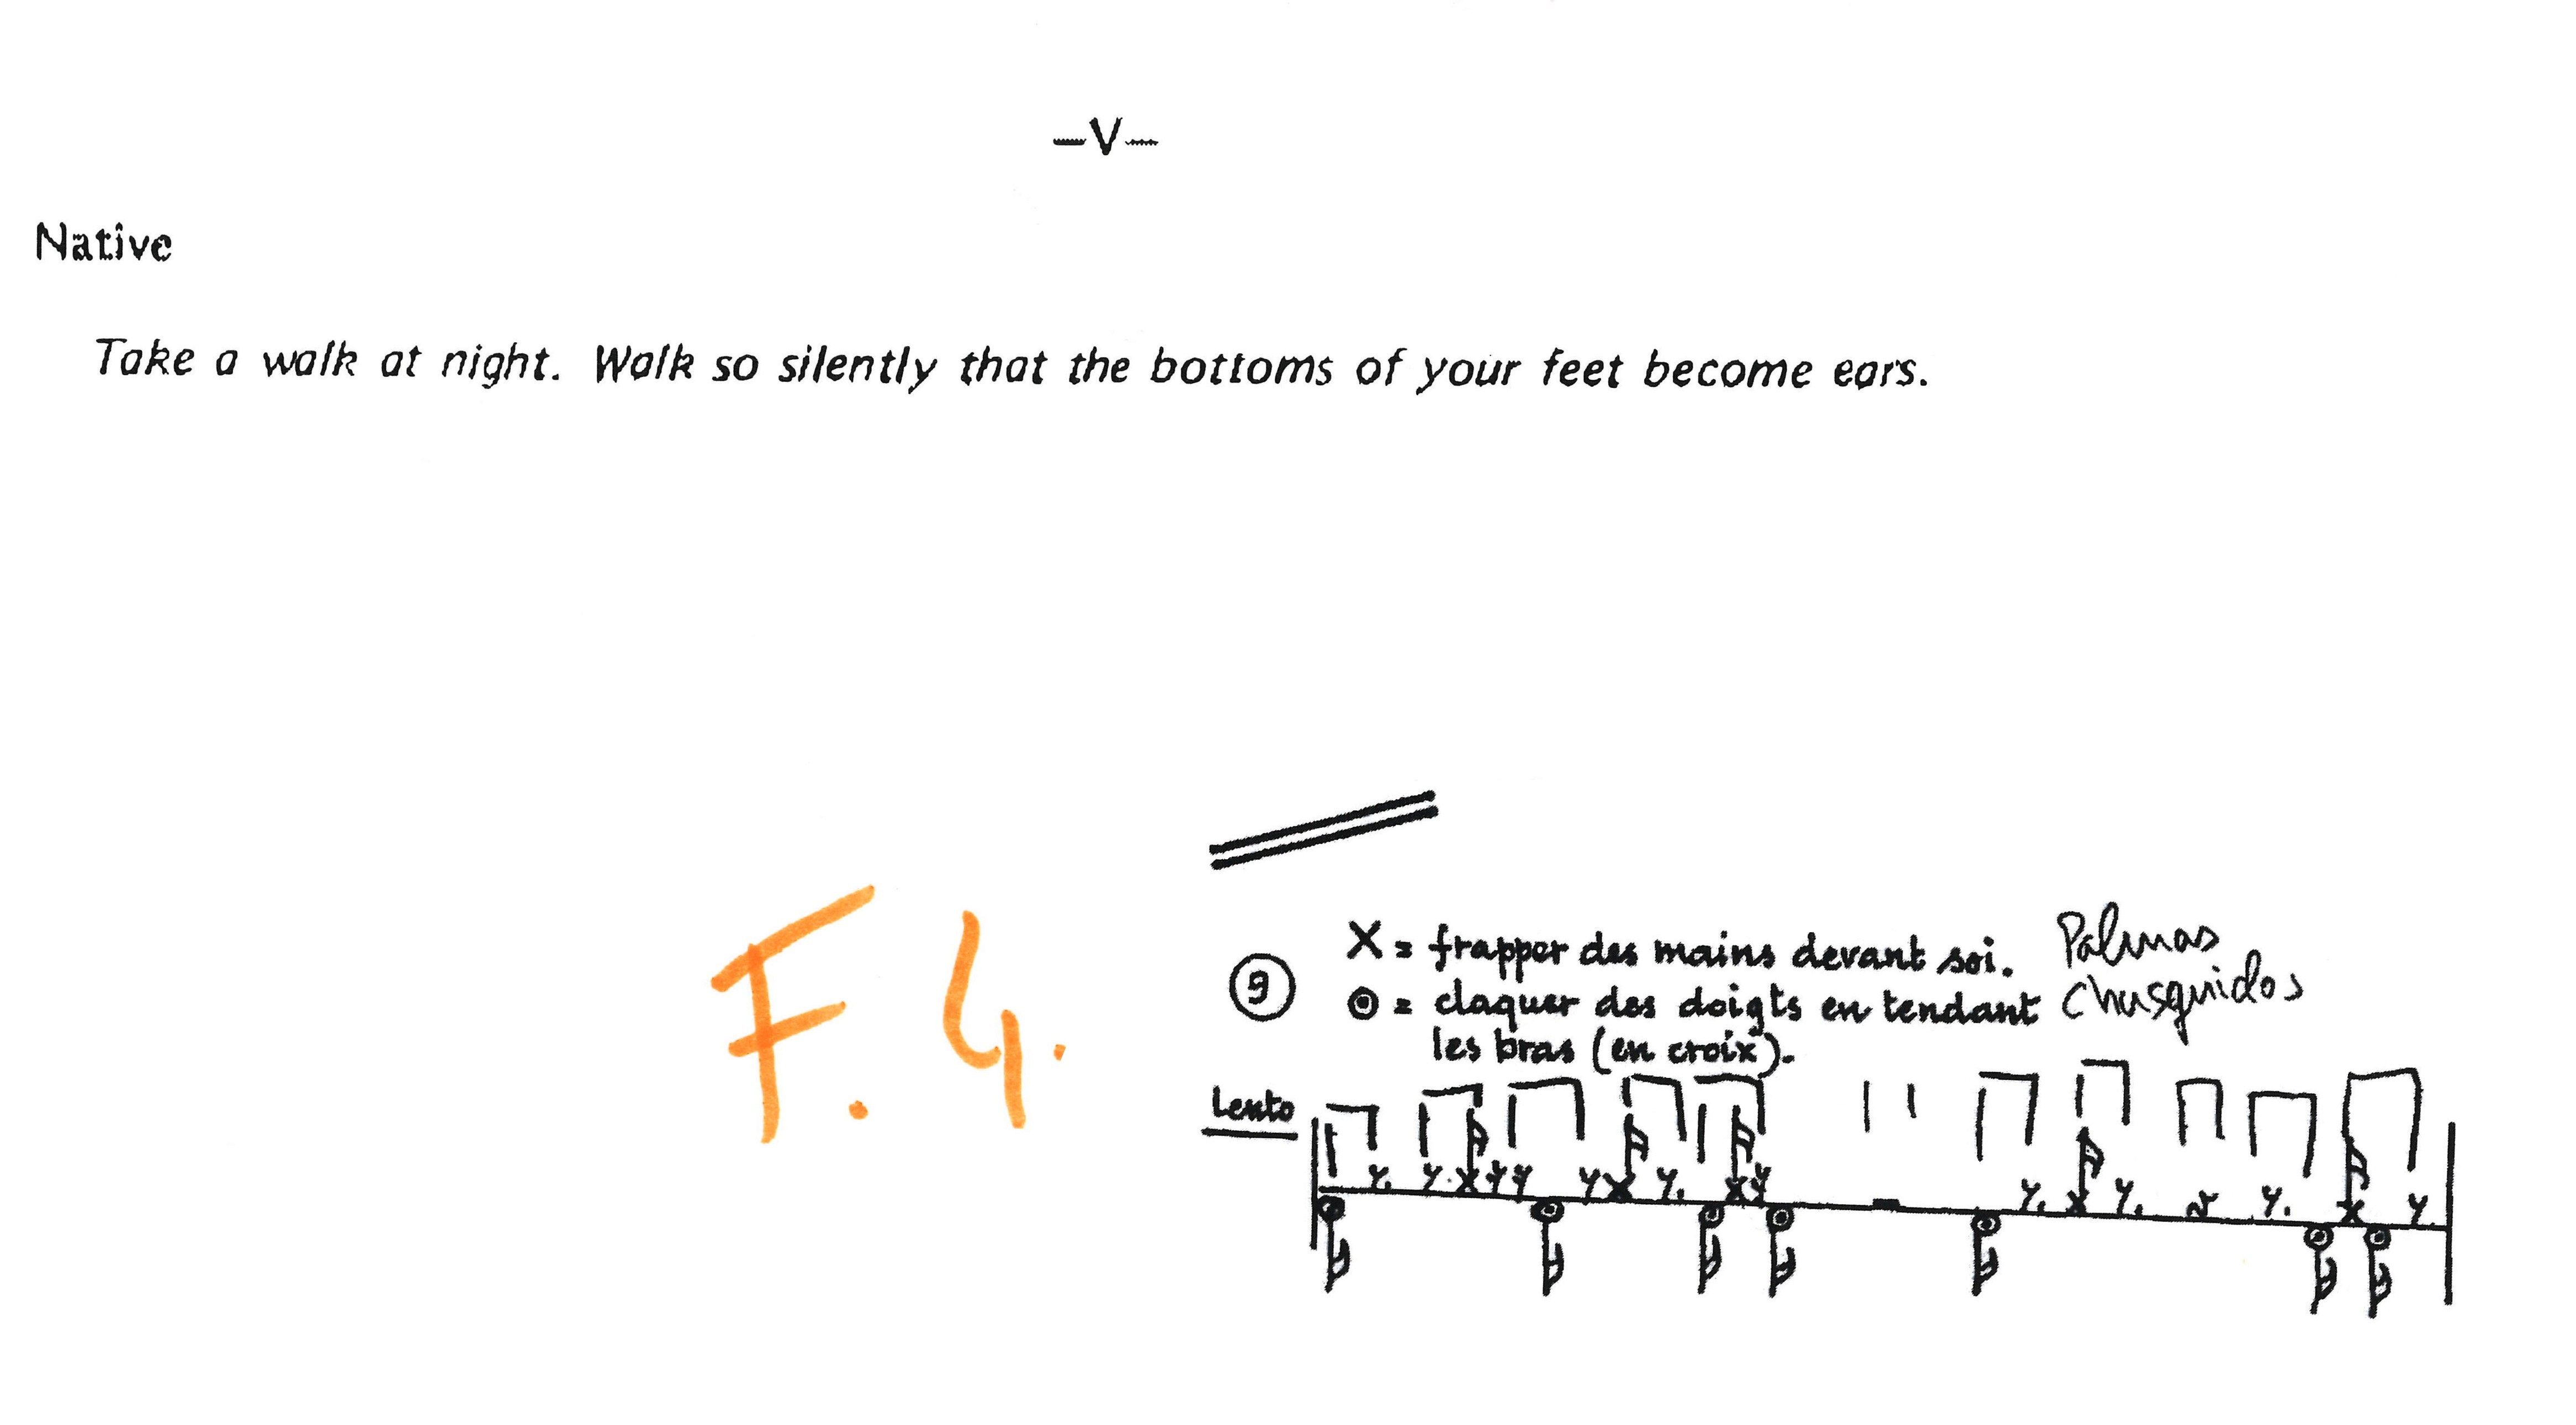 —V—
Native
Take a walk at night. Walk so silently that the bottoms of your feet become ears.
F. 4.
9
X = frapper des mains devant soi. Palmas
⊙ = claquer des doigts en tendant Chusquidos
les bras (en croix).
Lento